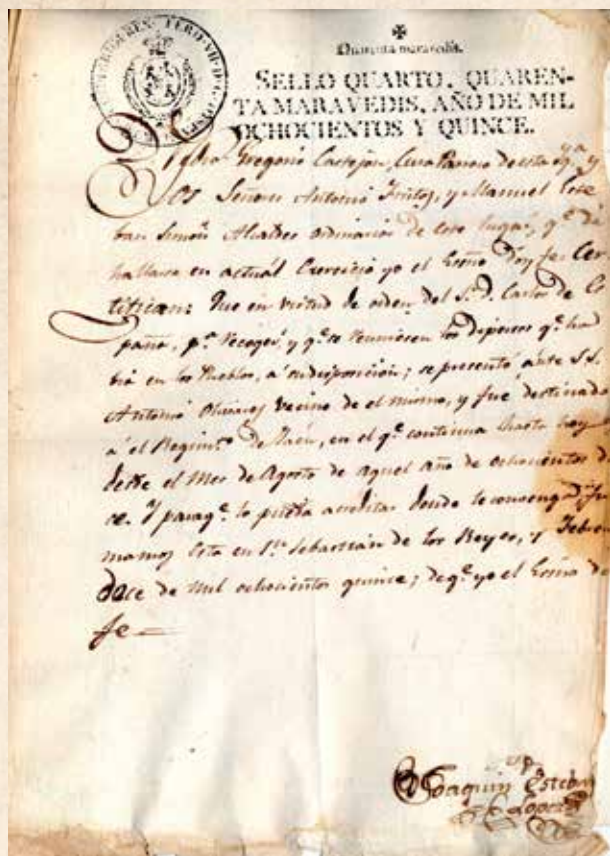 Quarenta maravedis.
SELLO QUARTO, QUAREN-
TA MARAVEDIS, AÑO DE MIL
OCHOCIENTOS Y QUINCE.
Gregorio Castejon, Cura Parroco de esta Yg.ª y
los Señores Antonio Frutos, y Manuel Este
ban Simon Alcaldes ordinarios de este lugar, q.e de
hallarse en actual Exercicio yo el Essno Doy fe: Cer
tifican: Que en virtud de orden del S.r D. Carlos de Es
paña, p.ª recoger, y q.e se reuniesen los dispersos q.e hu
bia en los Pueblos, a su disposicion; se presentó ante S.S.
Antonio Olivares vecino de el mismo, y fue destinado
a el Regim.to de Jaen, en el q.e continua hasta hoy
desde el Mes de Agosto de aquel año de ochocientos do
ce. Y para q.e lo pueda acreditar donde le convenga fir
mamos esta en S.n Sebastian de los Reyes, y Febrero
doce de mil ochocientos quince; de q.e yo el Essno doy
fe
Joaquin Esteban
Lopez